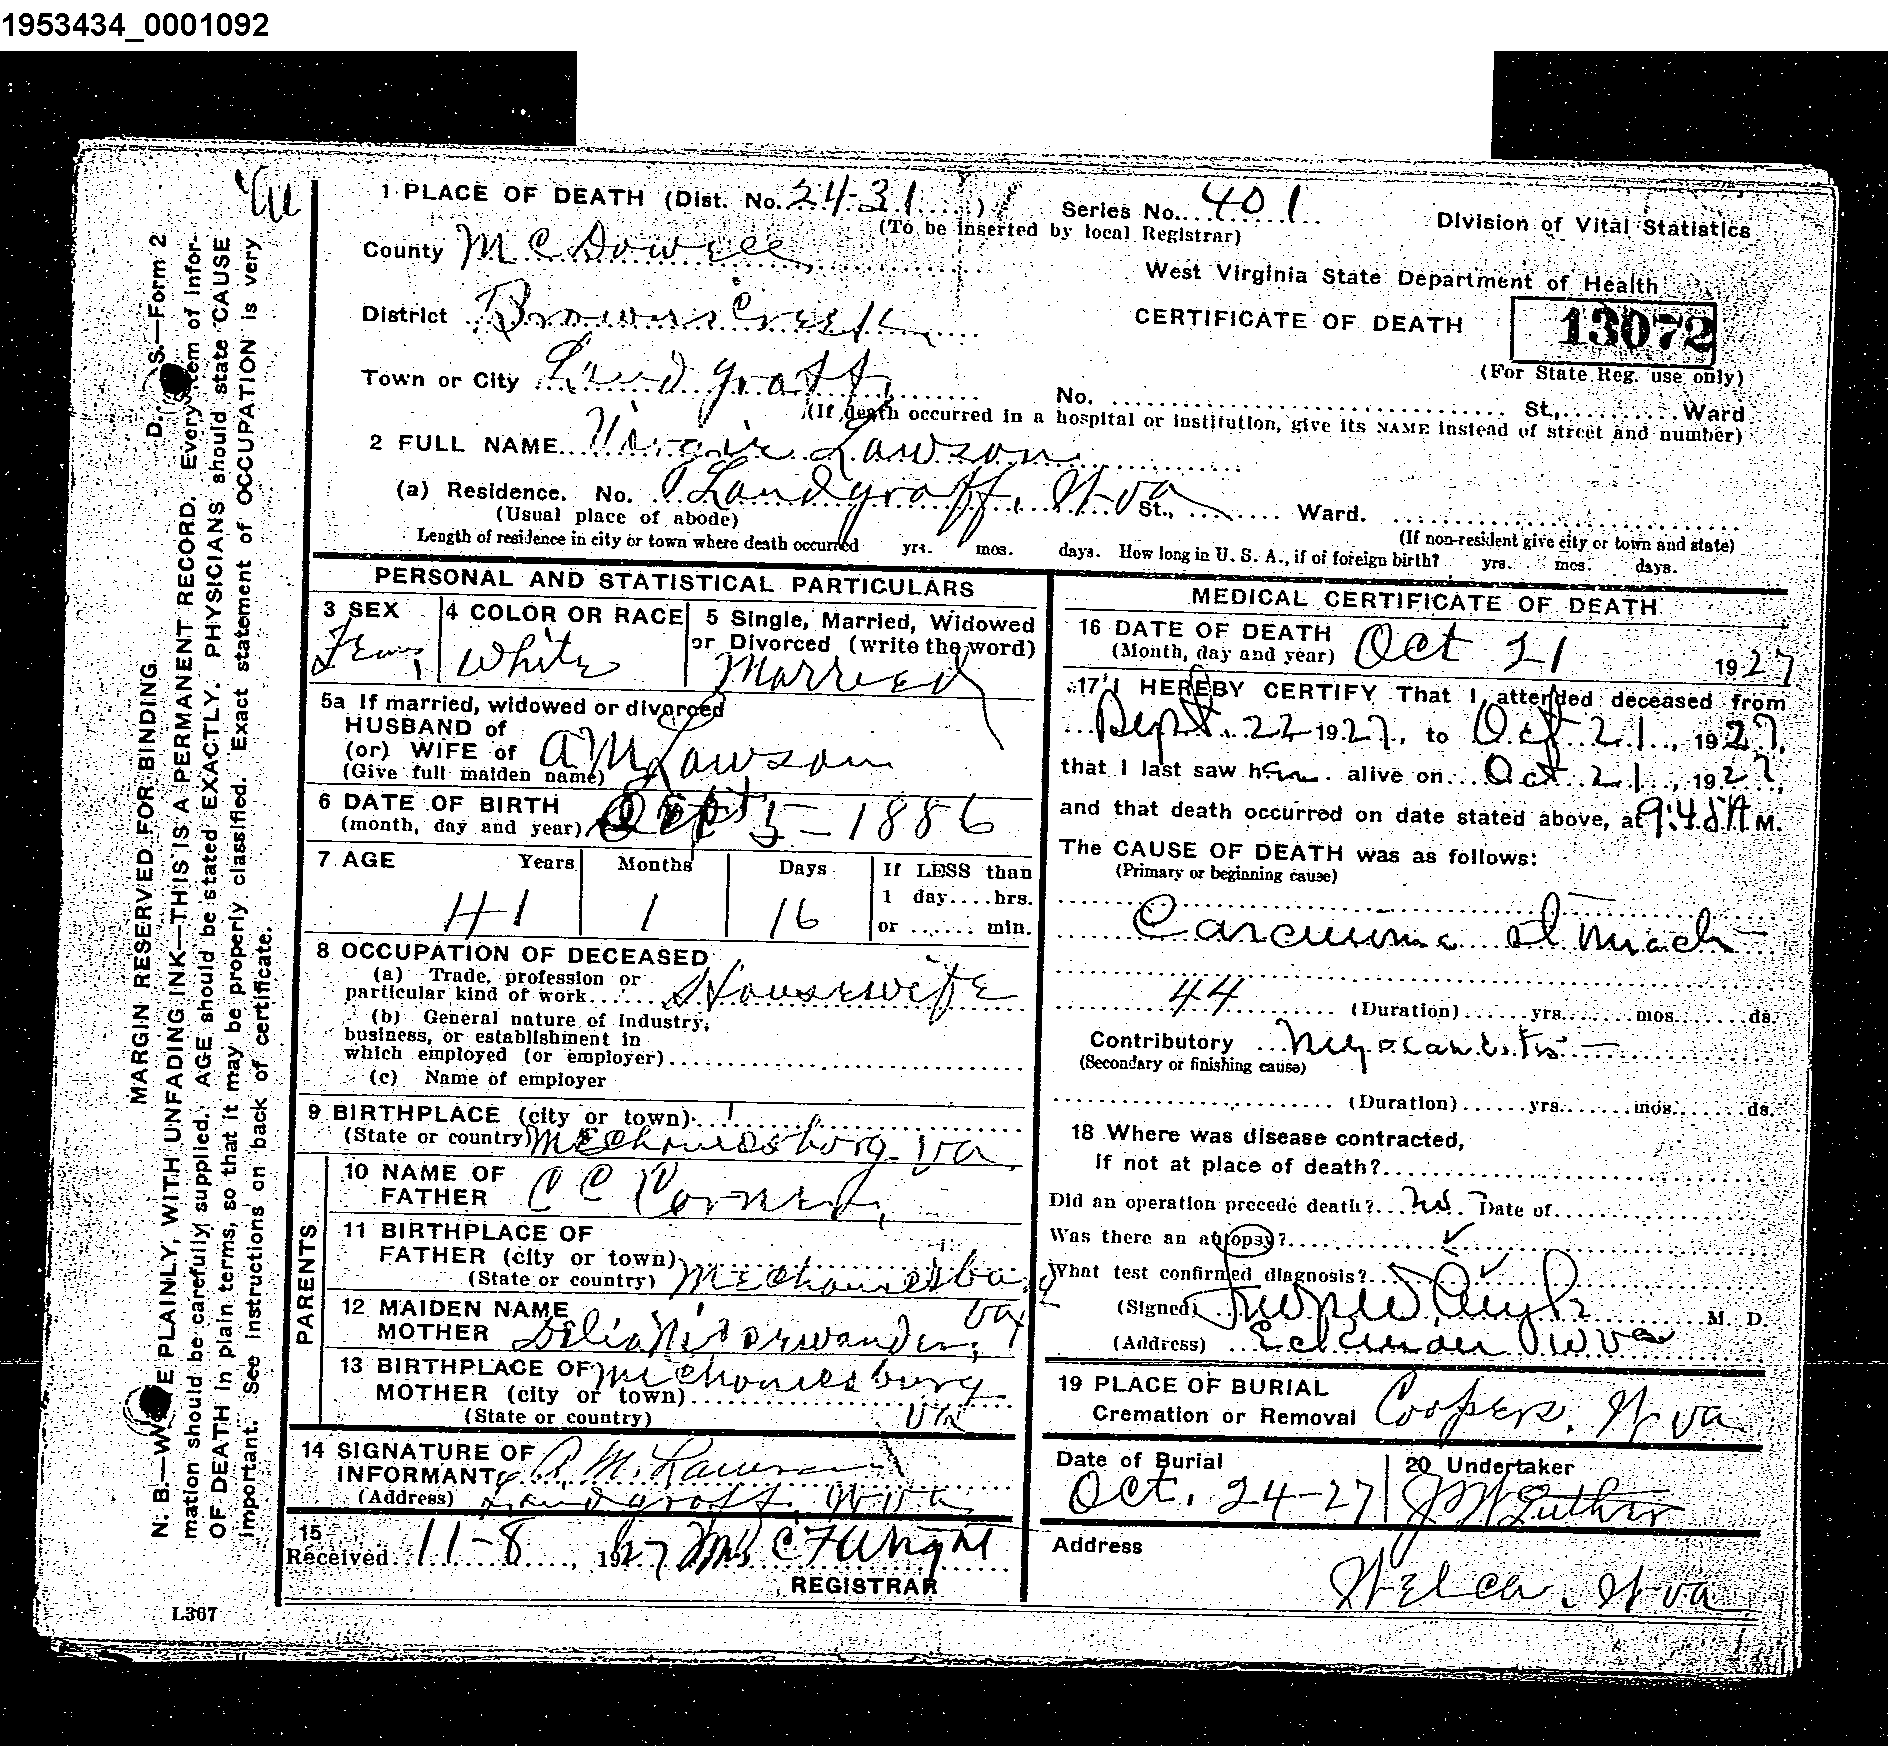 1953434_0001092
1 PLACE OF DEATH (Dist. No. 24-31) Series No. 401
(To be inserted by local Registrar)
Division of Vital Statistics
County McDowell
West Virginia State Department of Health
District Browns Creek
CERTIFICATE OF DEATH 13072
(For State Reg. use only)
Town or City Landgraff,
No. St., Ward
(If death occurred in a hospital or institution, give its NAME instead of street and number)
2 FULL NAME Virgie Lawson
(a) Residence. No. Landgraff, W va St., Ward.
(Usual place of abode) (If non-resident give city or town and state)
Length of residence in city or town where death occurred yrs. mos. days. How long in U. S. A., if of foreign birth? yrs. mos. days.
PERSONAL AND STATISTICAL PARTICULARS
3 SEX 4 COLOR OR RACE 5 Single, Married, Widowed
or Divorced (write the word)
Fem, White Married
5a If married, widowed or divorced
HUSBAND of
(or) WIFE of A M Lawson
(Give full maiden name)
6 DATE OF BIRTH
(month, day and year) Sept 5 - 1886
7 AGE Years Months Days If LESS than
1 day....hrs.
41 1 16 or ...... min.
8 OCCUPATION OF DECEASED
(a) Trade, profession or
particular kind of work Housewife
(b) General nature of industry,
business, or establishment in
which employed (or employer)
(c) Name of employer
9 BIRTHPLACE (city or town)
(State or country) Mechanicsburg Va.
PARENTS
10 NAME OF
FATHER C C
11 BIRTHPLACE OF
FATHER (city or town)
(State or country) Mechanicsburg
Va
12 MAIDEN NAME
MOTHER Delia
13 BIRTHPLACE OF Mechanicsburg
MOTHER (city or town)
(State or country) Va
14 SIGNATURE OF
INFORMANT A. M. Lawson
(Address) Landgraff, W va
15
Received 11-8, 1927 Mrs C F Wright
REGISTRAR
MEDICAL CERTIFICATE OF DEATH
16 DATE OF DEATH
(Month, day and year) Oct 21 1927
17 I HEREBY CERTIFY That I attended deceased from
Sept. 22 1927, to Oct 21, 1927,
that I last saw her alive on Oct 21, 1927,
and that death occurred on date stated above, at 9:45 A M.
The CAUSE OF DEATH was as follows:
(Primary or beginning cause)
Carcinoma Stomach
44 (Duration) yrs. mos. ds.
Contributory Myocarditis
(Secondary or finishing cause)
(Duration) yrs. mos. ds.
18 Where was disease contracted,
if not at place of death?
Did an operation precede death? No Date of
Was there an autopsy?
What test confirmed diagnosis?
(Signed) M. D.
(Address) Eckman W va
19 PLACE OF BURIAL
Cremation or Removal Coopers, W va
Date of Burial 20 Undertaker
Oct. 24-27 J W Luther
Address
Welch, W va
MARGIN RESERVED FOR BINDING D. S.—Form 2
N. B.—WRITE PLAINLY, WITH UNFADING INK—THIS IS A PERMANENT RECORD. Every item of infor-
mation should be carefully supplied. AGE should be stated EXACTLY. PHYSICIANS should state CAUSE
OF DEATH in plain terms, so that it may be properly classified. Exact statement of OCCUPATION is very
important. See instructions on back of certificate.
L367